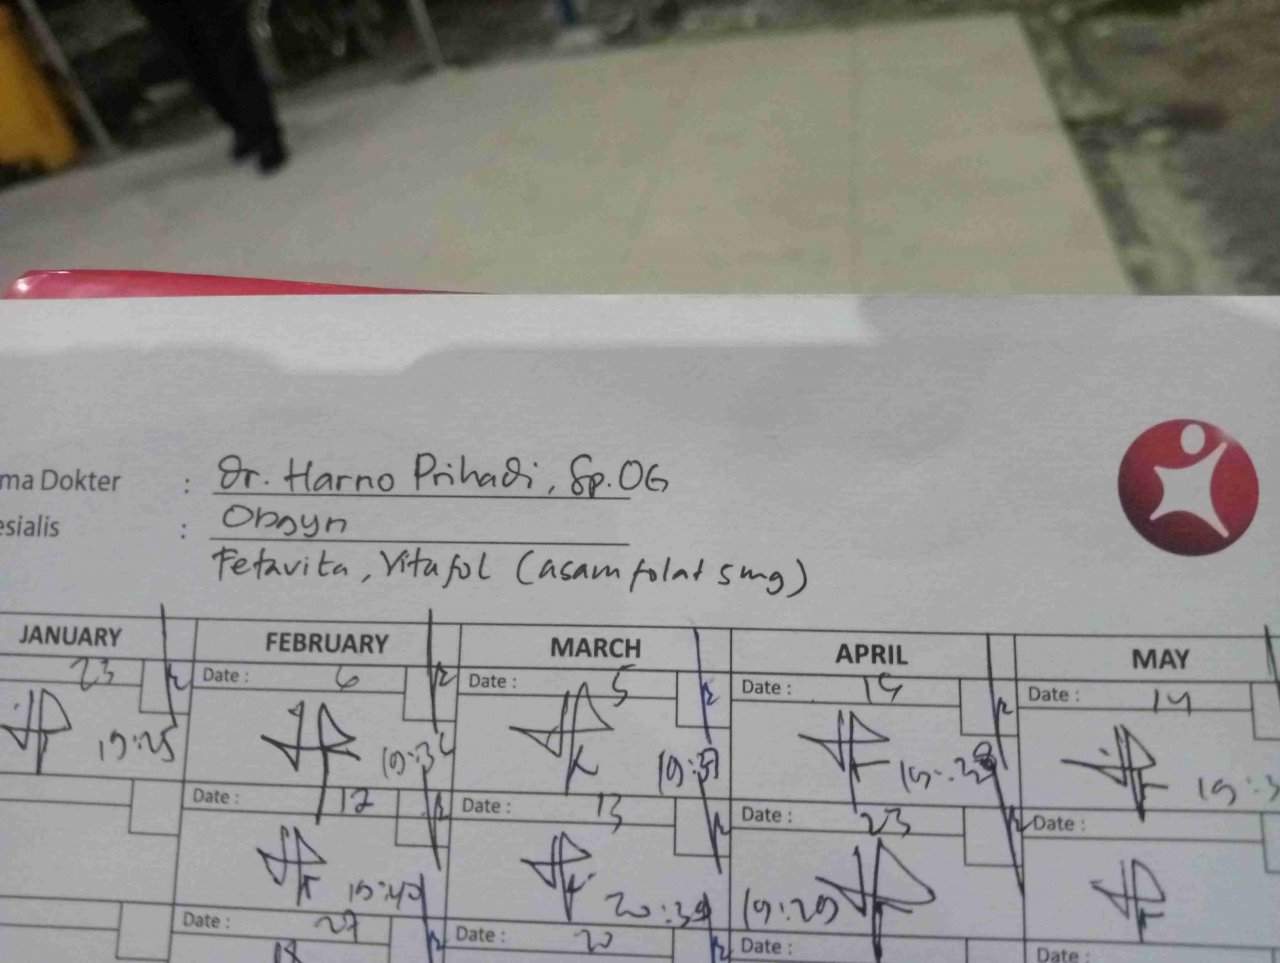 ma Dokter : Dr. Harno Prihadi, Sp.OG
esialis : Obgyn
Fetavita, Vitafol (asam folat 5 mg)
JANUARY FEBRUARY MARCH APRIL MAY
23 Date : 6 Date : 5 Date : 15 Date : 14
19:25 19:3 19:31 19:38 19:3
Date : 12 Date : 13 Date : 23 Date :
19:40 20:39 19:29
Date : 27 Date : 20 Date : Date :